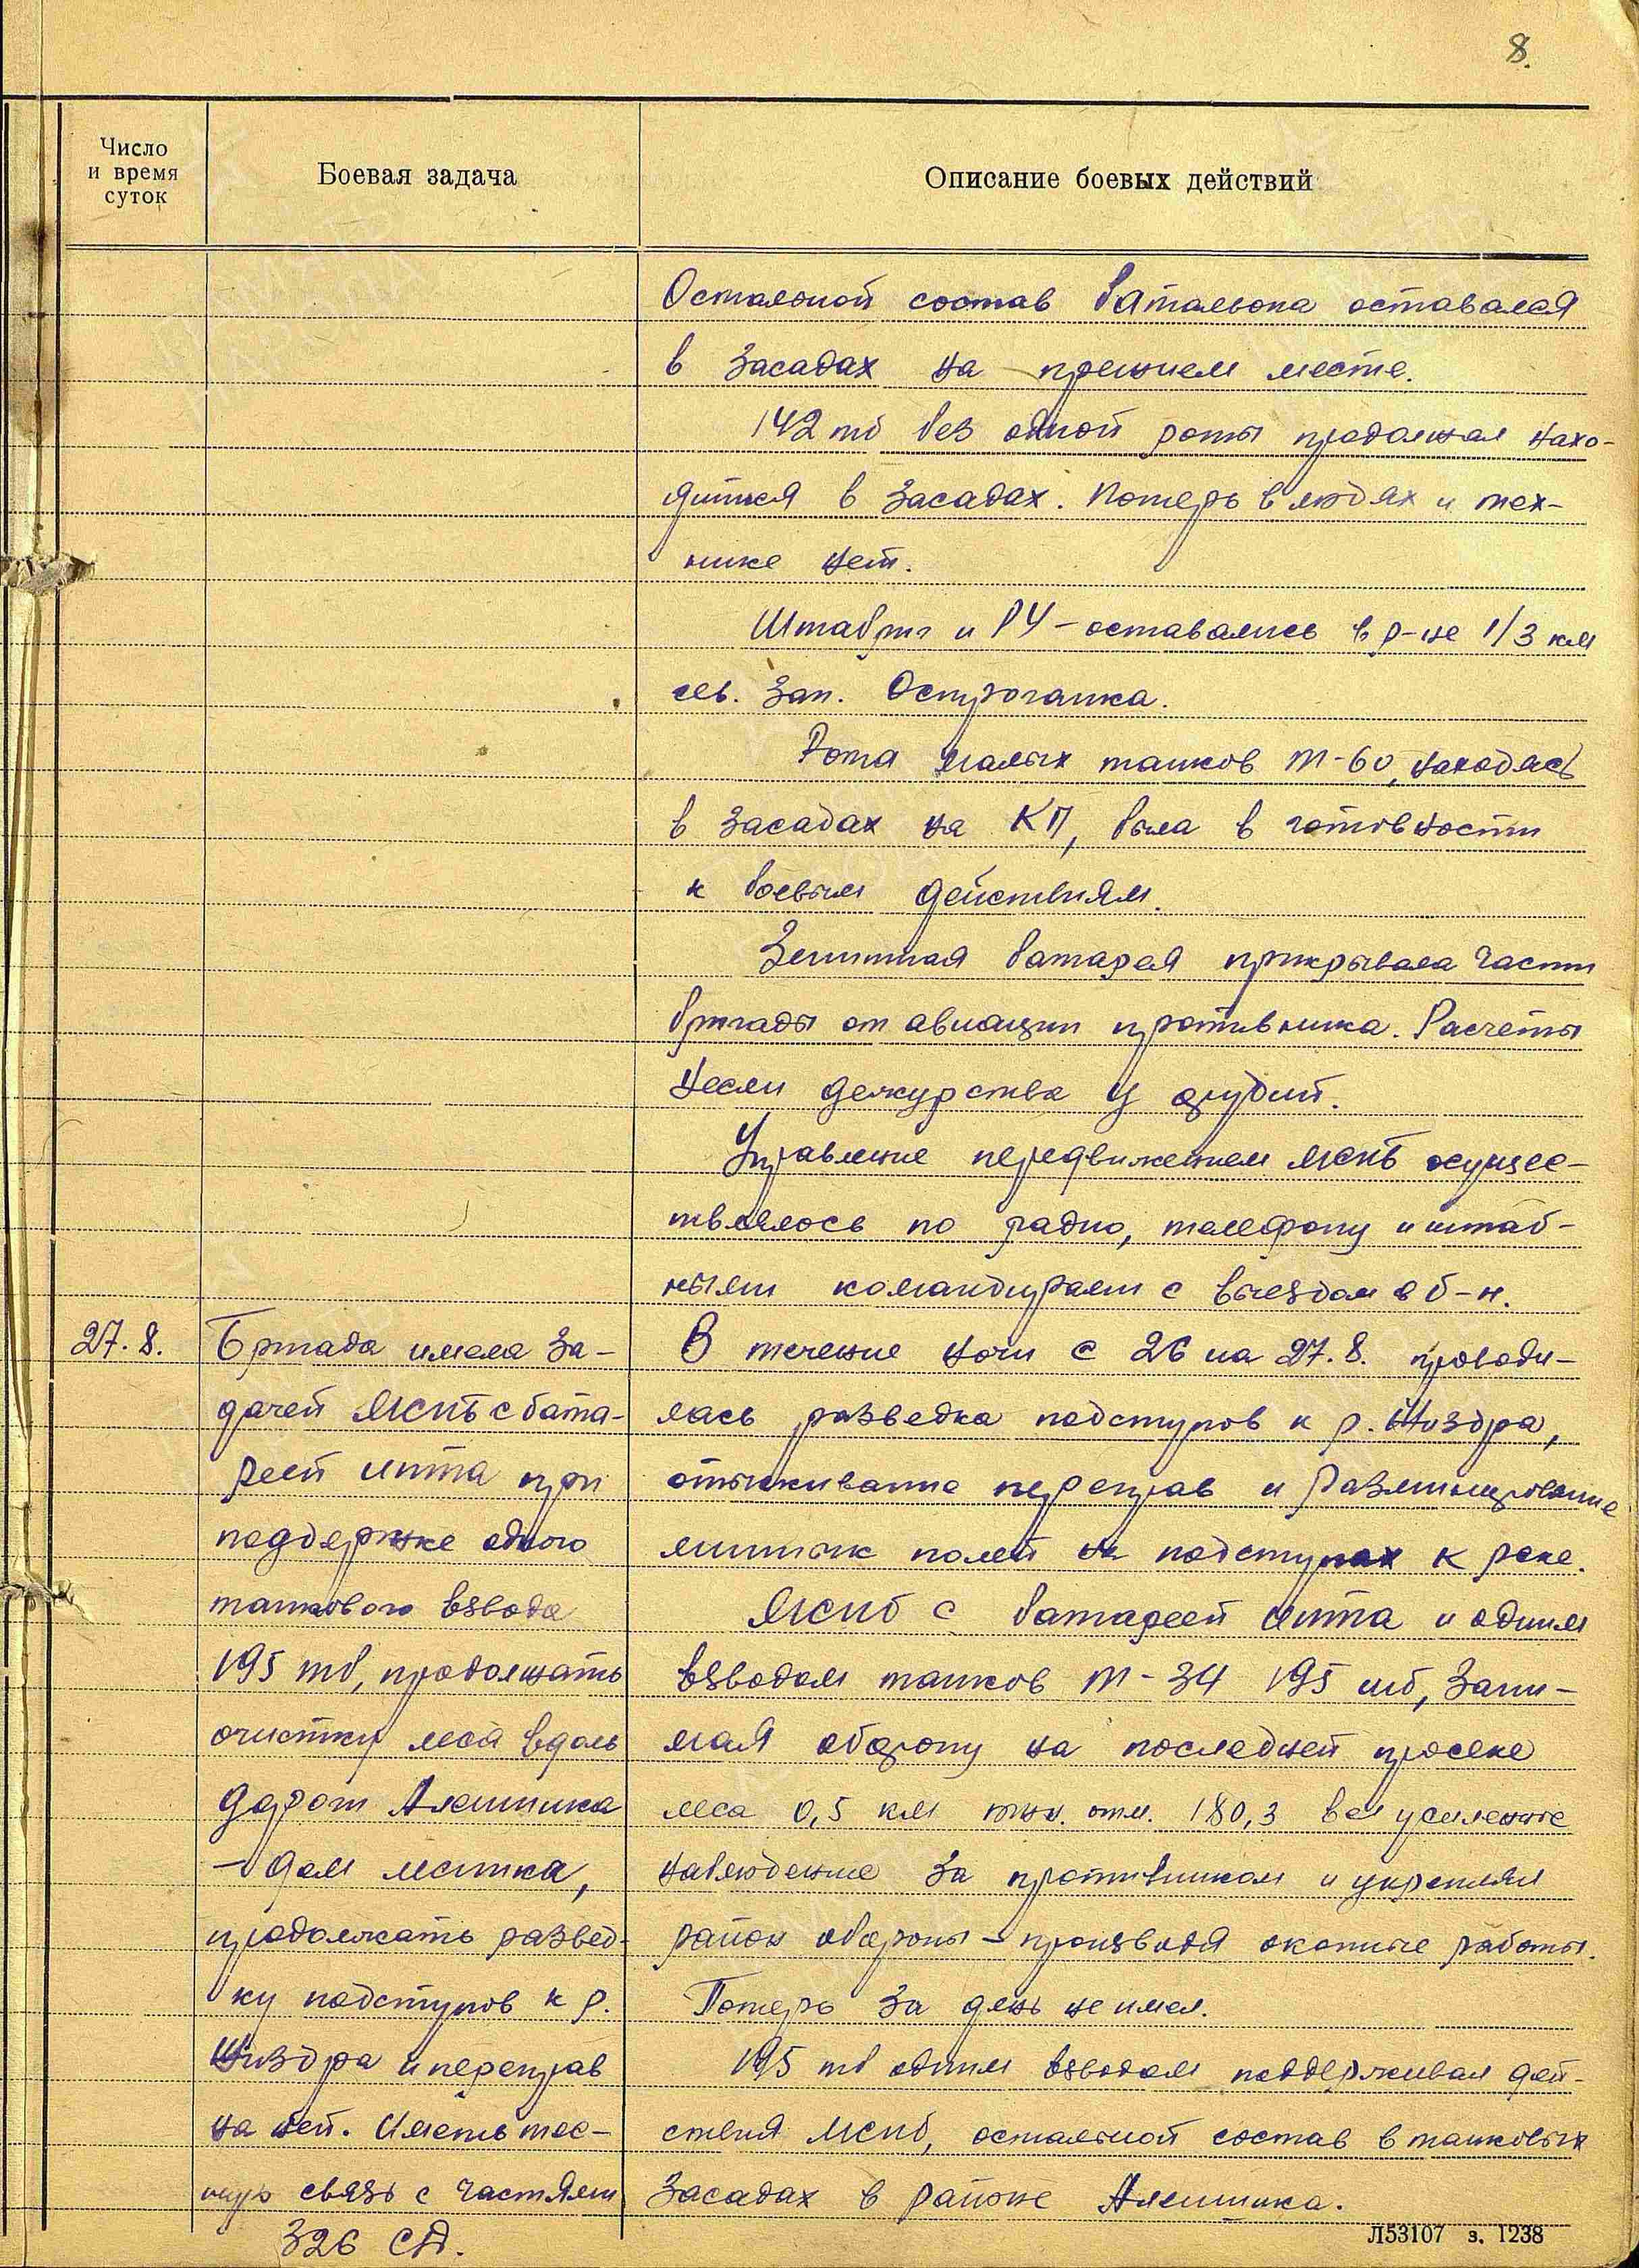 8.
Число
и время
суток
Боевая задача
Описание боевых действий
Остальной состав батальона оставался
в засадах на прежнем месте.
142 тб без одной роты продолжал нахо-
дится в засадах. Потерь в людях и тех-
нике нет.
Штабриг и РУ - оставались в р-не 1/3 км
сев. зап. Острогатка.
Рота малых танков Т-60, находясь
в засадах на КП, была в готовности
к боевым действиям.
Зенитная батарея прикрывала части
бригады от авиации противника. Расчеты
несли дежурства у орудий.
Управление передвижением мспб осущес-
твлялось по радио, телефону и штаб-
ными командирами с выездом в б-н.
27.8.
Бригада имела за-
дачей мспб с бата-
реей ипта при
поддержке одного
танкового взвода
195 тб, продолжать
очистку леса вдоль
дорог Алешинка
- дом лесника,
продолжать развед-
ку подступов к р.
Жиздра и переправ
на ней. Иметь тес-
ную связь с частями
326 СД.
В течение ночи с 26 на 27.8. проводи-
лась разведка подступов к р. Жиздра,
отыскивание переправ и разминирование
минных полей на подступах к реке.
Мспб с батареей ипта и одним
взводом танков Т-34 195 тб, зани-
мая оборону на последней просеке
леса 0,5 км южн. отм. 180,3 вел усиленное
наблюдение за противником и укреплял
район обороны - производя окопные работы.
Потерь за день не имел.
195 тб одним взводом поддерживал дей-
ствия мспб, остальной состав в танковых
засадах в районе Алешинка.
Л53107 з. 1238